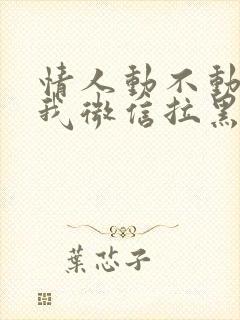 情人動不動
我微信拉黑
葉芯子